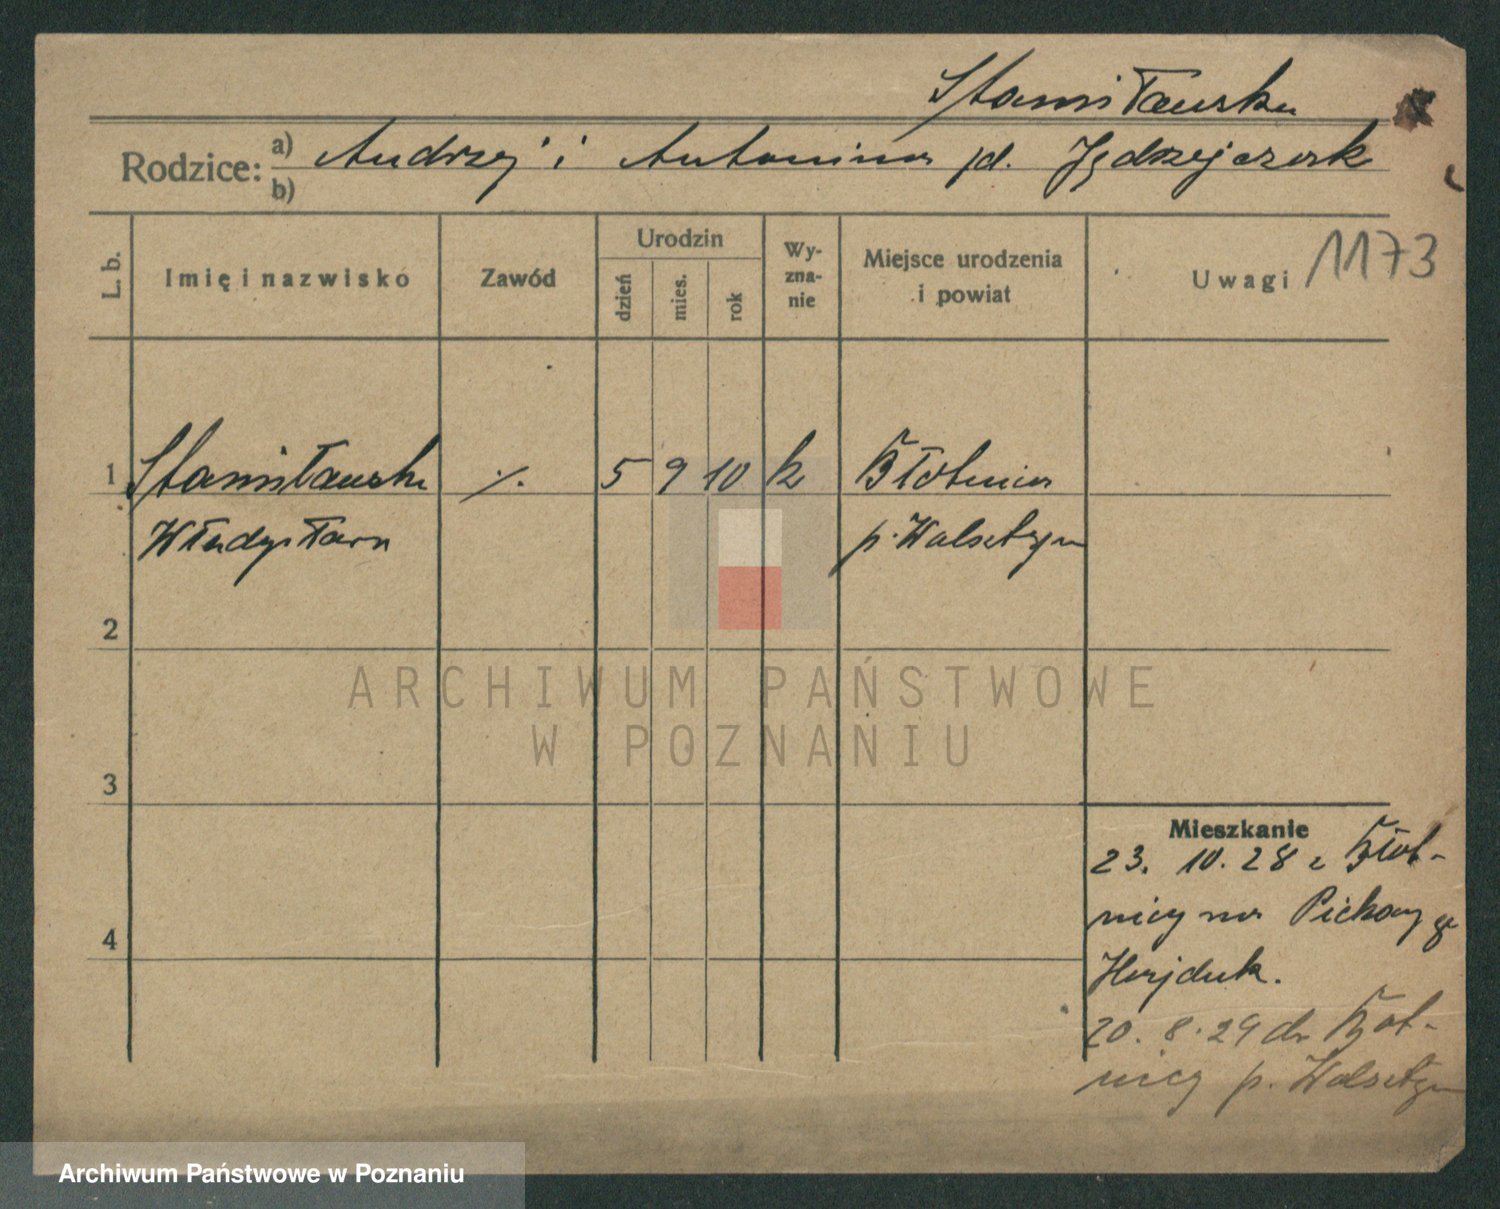 Stanisławska
Rodzice: a) Andrzej i Antonina
b)
L. b.
Imię i nazwisko
Zawód
Urodzin
dzień
mies.
rok
Wy-
zna-
nie
Miejsce urodzenia
i powiat
Uwagi
1173
1 Stanisławska ./. 5 9 10 k Błotnica
Władysława p. Wolsztyn
2
3
4
Mieszkanie
23. 10. 28 z Błot-
nicy na Piekary
Hejduk.
20. 8. 29 do Błot-
nicy p. Wolsztyn
ARCHIWUM PAŃSTWOWE
W POZNANIU
Archiwum Państwowe w Poznaniu